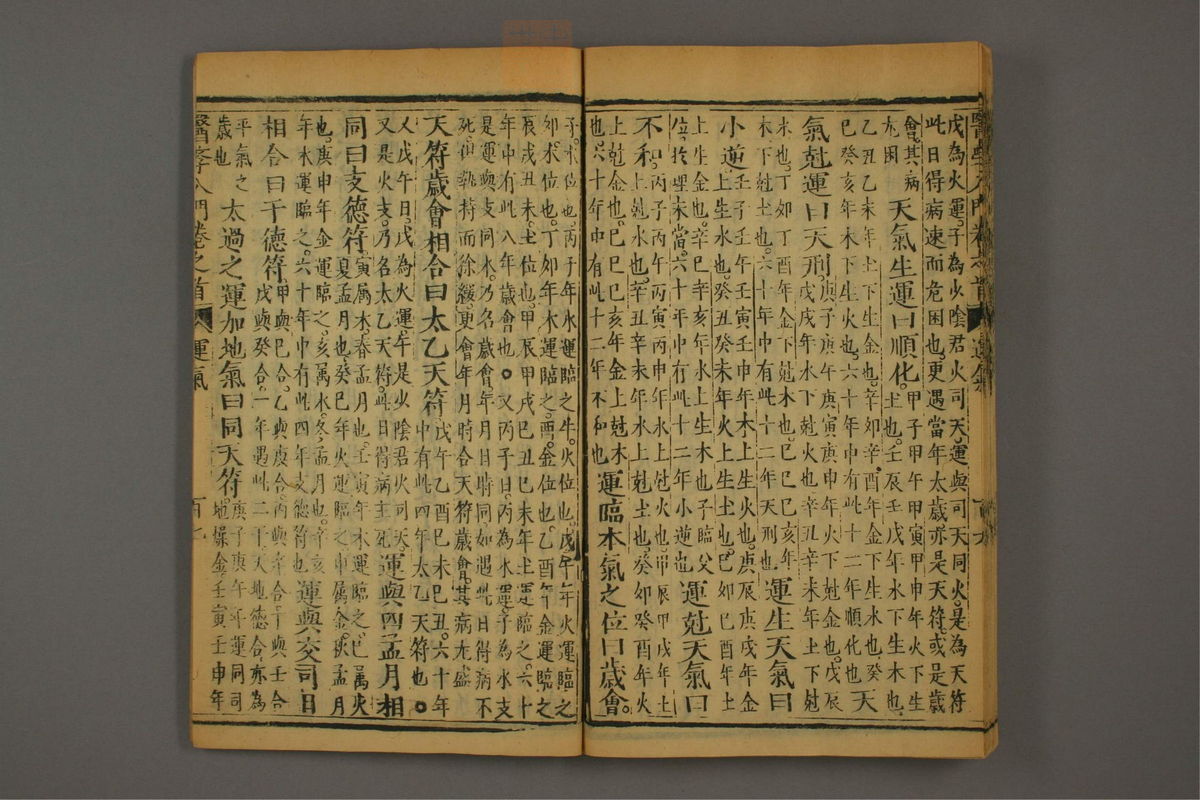 醫學入門卷之首 運氣 百六
戊為火運子為少陰君火司天運與司天同火是為天符
此日得病速而危困也更遇當年太歲亦是天符或是歲
會其病
尤困
天氣生運曰順化
甲子甲午甲寅甲申年火下生
土也壬辰壬戌年水下生木也
乙丑乙未年土下生金也辛卯辛酉年金下生水也癸
巳癸亥年木下生火也六十年中有此十二年順化也
天
氣尅運曰天刑
庚子庚午庚寅庚申年火下尅金也戊辰
戊戌年水下尅火也辛丑辛未年土下尅
水也丁卯丁酉年金下尅木也己巳己亥年
木下尅土也六十年中有此十二年天刑也
運生天氣曰
小逆
壬子壬午年壬寅壬申年木上生火也庚辰庚戌年金
上生水也癸丑癸未年火上生土也己卯己酉年土
上生金也辛巳辛亥年水上生木也子臨父
位於理未當六十年中有此十二年小逆也
運尅天氣曰
不和
丙子丙午丙寅丙申年水上尅火也甲辰甲戌年土
上尅水也辛丑辛未年水上尅土也癸卯癸酉年火
上尅金也乙巳乙亥年金上尅木
也六十年中有此十二年不和也
運臨本氣之位曰歲會
子水位也丙子年水運臨之午火位也戊午年火運臨之
卯木位也丁卯年木運臨之酉金位也乙酉年金運臨之
辰戌丑未土位也甲辰甲戌己丑己未年土運臨之六十
年中有此八年歲會也○又丙子日丙為水運子為水支
是運與支同水乃名歲會年月日時同如遇此日得病不
死但執持而徐緩更會年月時合天符歲會其病尤盛
天符歲會相合曰太乙天符
戊午乙酉己未己丑六十年
中有此四年太乙天符也○
又戊午日戊為火運午是少陰君火司天
又是火支乃名太乙天符此日得病主死
運與四孟月相
同曰支德符
寅屬木春孟月也壬寅年木運臨之巳屬火
夏孟月也癸巳年火運臨之申屬金秋孟月
也庚申年金運臨之亥屬水冬孟月也辛亥
年水運臨之六十年中有此四年支德符也
運與交司日
相合曰干德符
甲與己合乙與庚合丙與辛合丁與壬合
戊與癸合一年遇此二干天地德合亦為
平氣之
歲也
太過之運加地氣曰同天符
庚子庚午年運同司
地燥金壬寅壬申年
醫學入門卷之首 運氣 百七